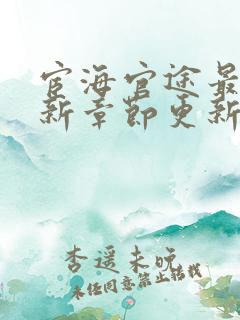 宦海官途最
新章节更新
杏遥未晚
未经同意禁止转载